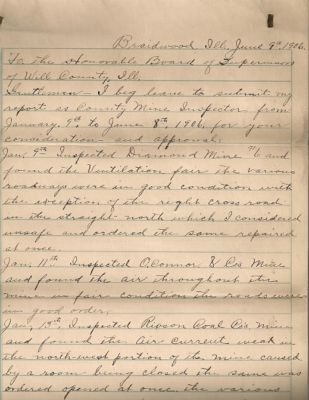 Braidwood, Ill, June 9th 1906.
To the Honorable Board of Supervisors
of Will County, Ill.
Gentlemen – I beg leave to submit my
report as County Mine Inspector from
January, 9th to June 8th, 1906, for your
consideration and approval.
Jan, 9th Inspected Diamond Mine No 6 and
found the Ventilation fair the various
roadways were in good condition with
the exception of the right cross road
in the straight north which I considered
unsafe and ordered the same repaired
at once.
Jan, 11th Inspected O'Connor & Co's Mine
and found the air throughout the
mine in fair condition the roads were
in good order,
Jan, 13th, Inspected Coal Co's mine
and found the air current weak in
the northwest portion of the mine caused
by a room being closed the same was
ordered opened at once the various